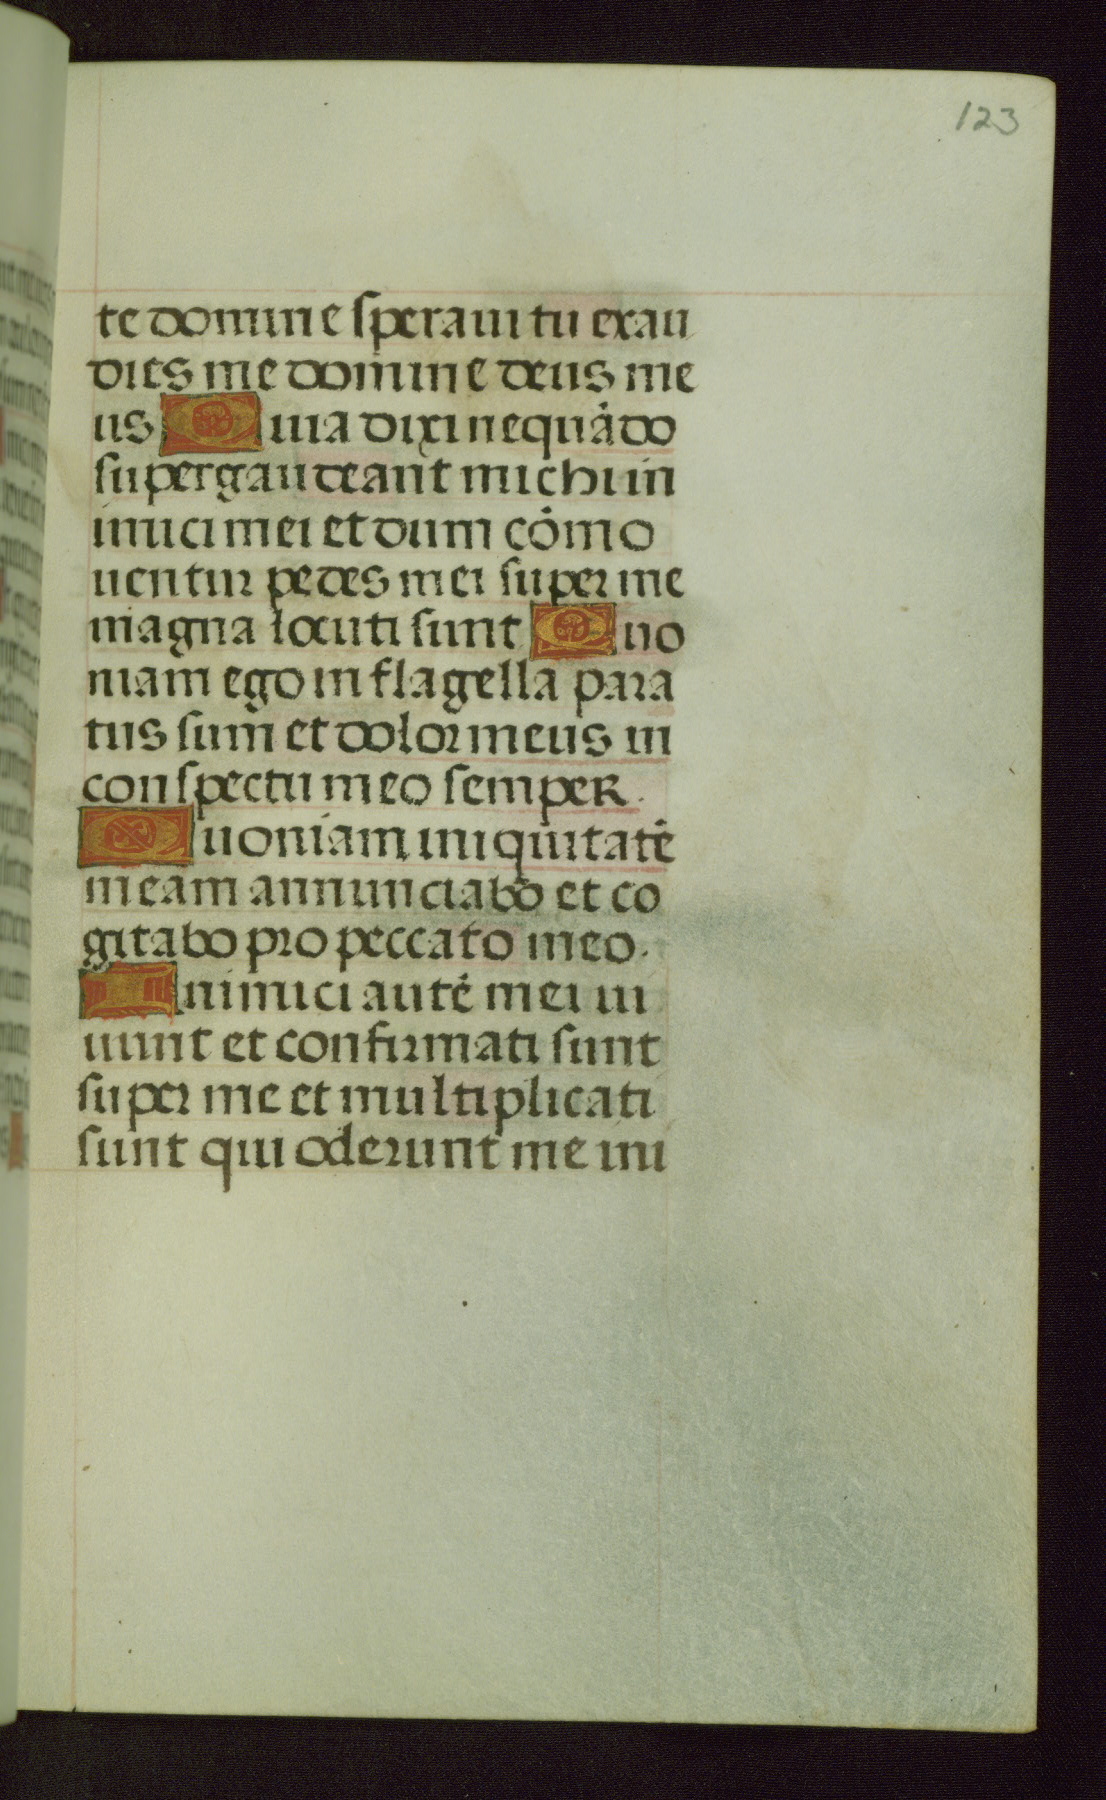 123
te domine speraui tu exau
dies me domine deus me
us Quia dixi nequãdo
supergaudeant michi in
imici mei et dum cõmo
uentur pedes mei super me
magna locuti sunt Quo
niam ego in flagella para
tus sum et dolor meus in
conspectu meo semper.
Quoniam iniquitatẽ
meam annunciabo et co
gitabo pro peccato meo.
Inimici autẽ mei ui
uunt et confirmati sunt
super me et multiplicati
sunt qui oderunt me ini